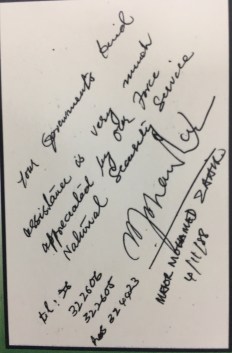 Your Governments kind
assistance is very much
appreciated by our Force
National Security Service
MAJOR MOHAMED ZAHIR
4/11/88
322606
322605
Res 324023